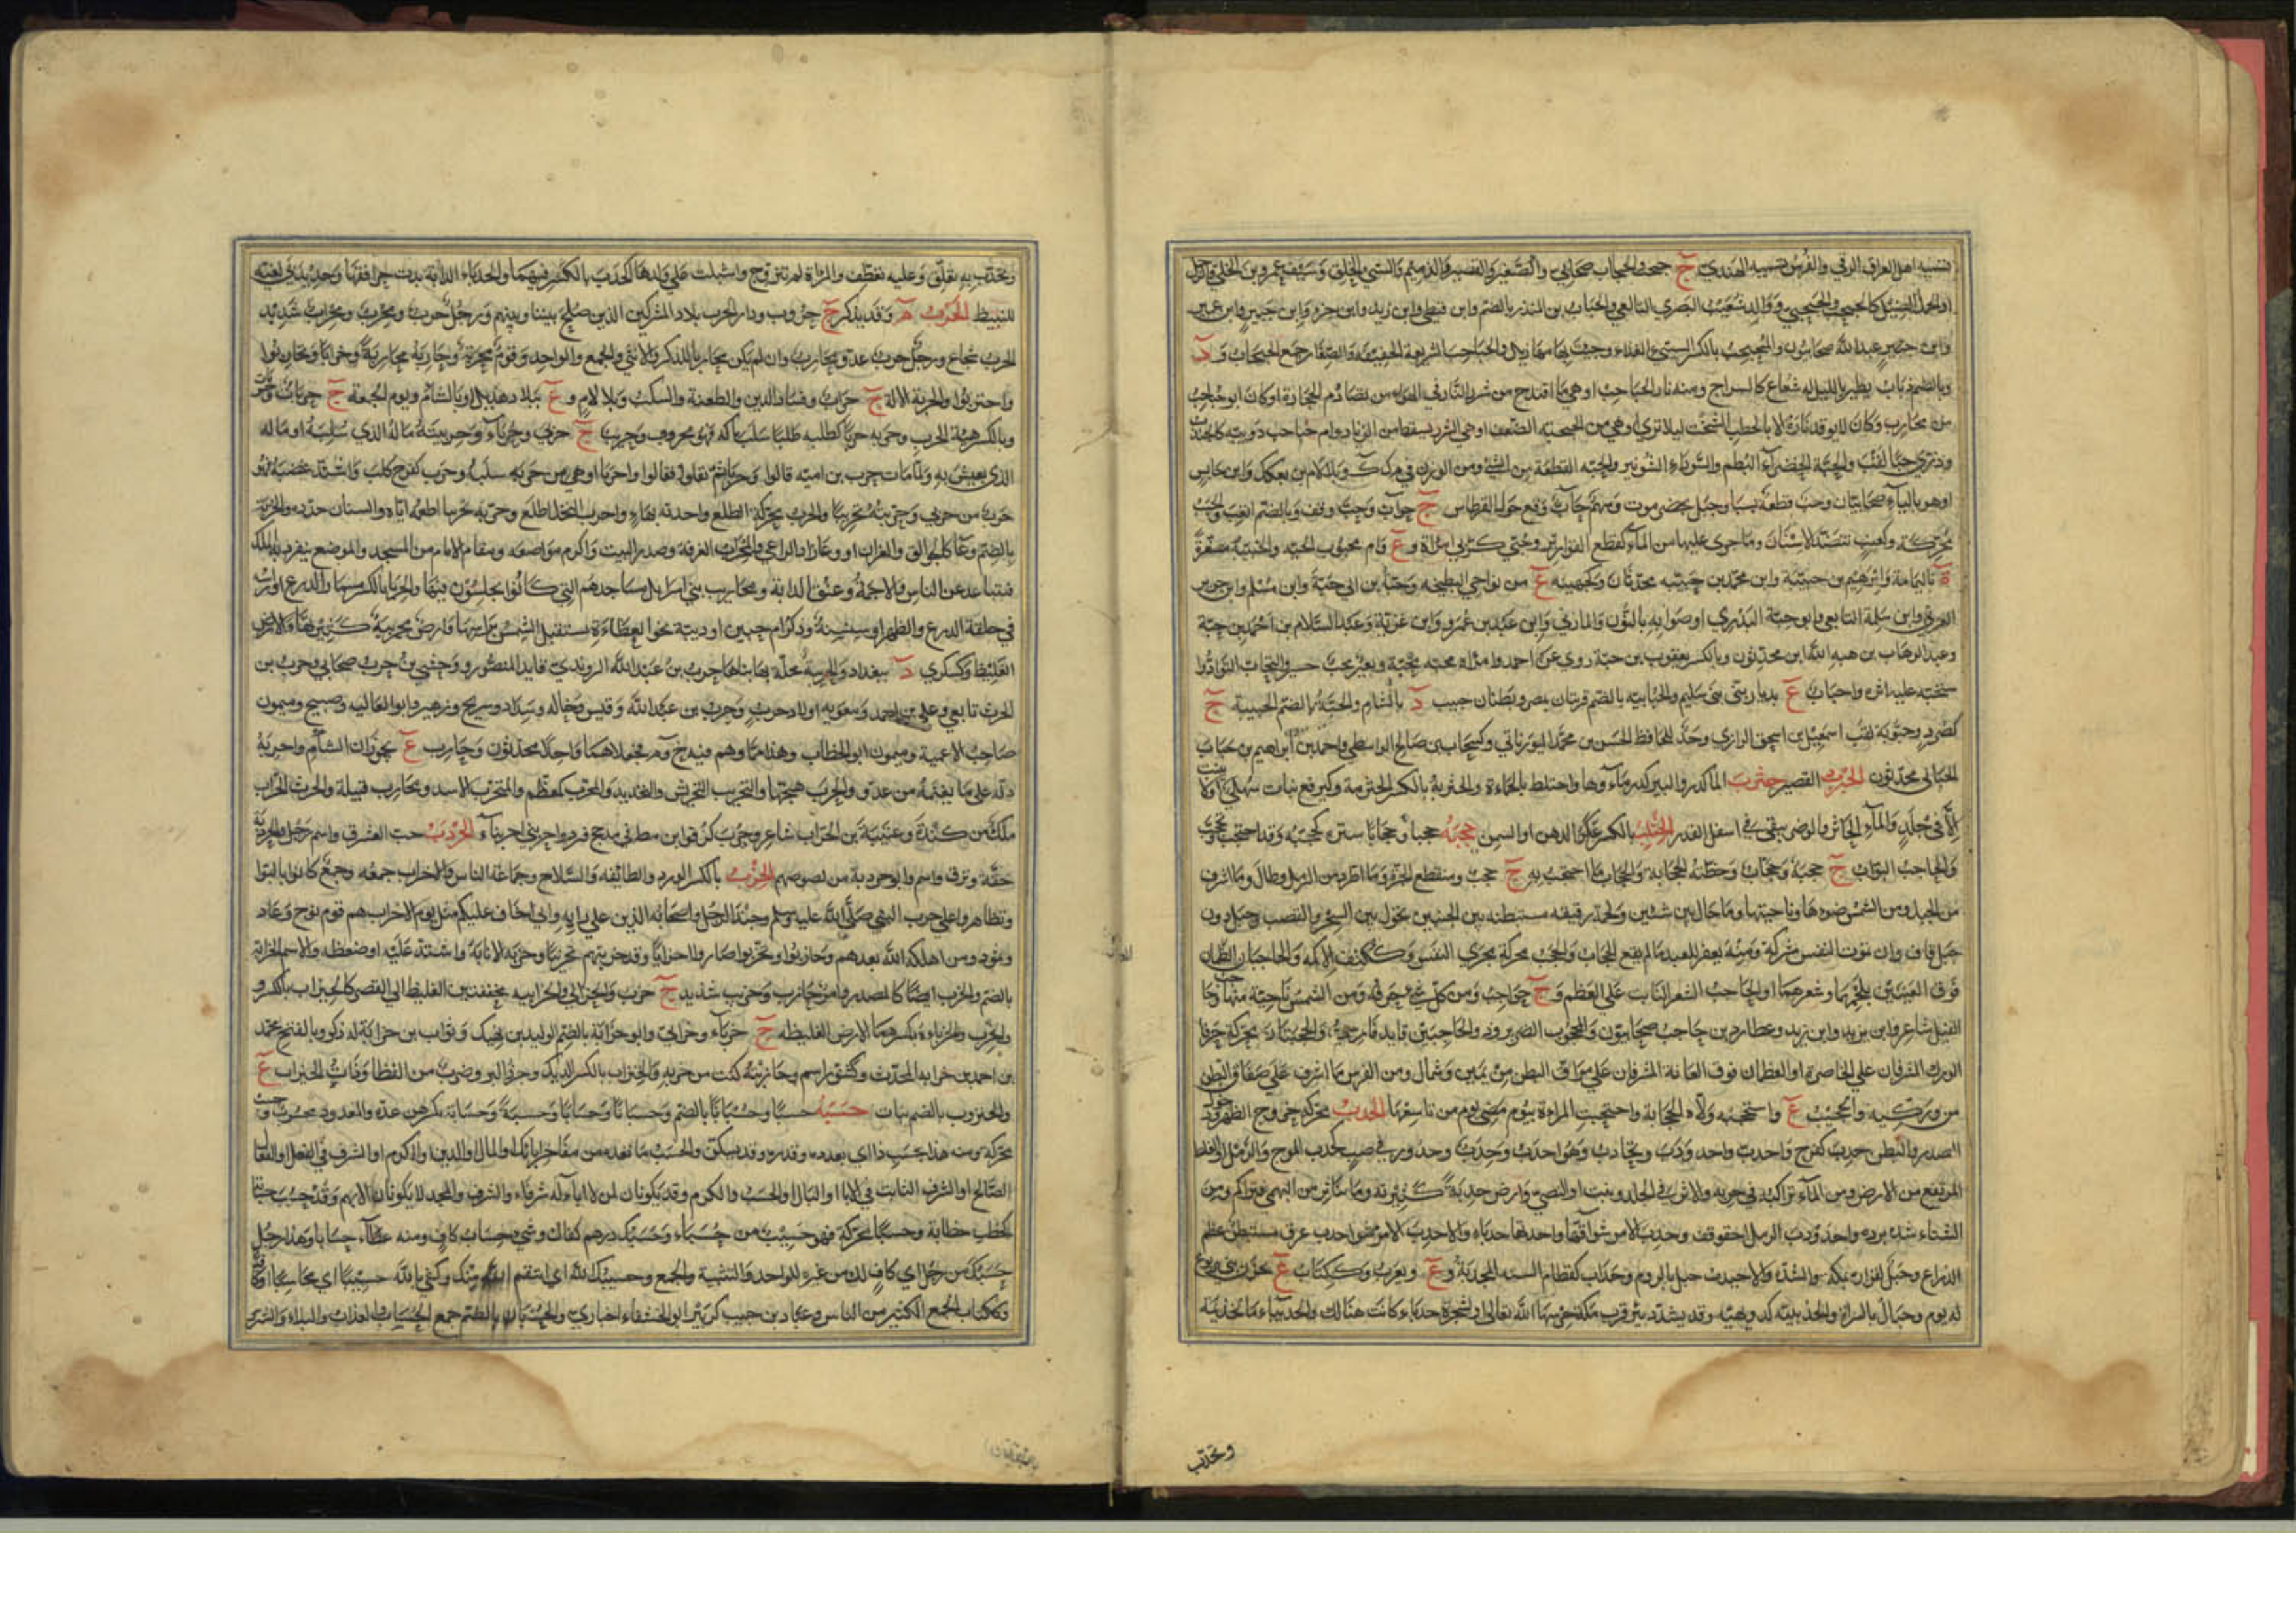 تسميه اهل العراق الرقي والفرس تسميه الهندي ج جحجحاب صحابي والصغير والقصير والدميم والسيئ الخلق وسيف عمرو بن الخلي
او الجمل الضئيل كالحبحب والحبحبي ووالد شعيب البصري التابعي والحباب بن المنذر بالضم وابن قيظي وابن زيد وابن جزء وابن جبير وابن عمير
وابن عبد الله صحابيون والمحبحب بالكسر السيئ الغذاء وجئت بها مهازيل والحباحب السريعة الخفيفة والصغار جمع الحبحاب و د
وبالضم ذباب يطير بالليل له شعاع كالسراج ومنه نار الحباحب او هي ما اقتدح من شرر النار في الهواء من تصادم الحجارة او كان ابو حباحب
من محارب وكان لا يوقد ناره الا بالحطب الشخت ليلا ترى او هي من الحبحبة الضعف او هي الشرر يسقط من الزناد وام حباحب دويبة كالجندب
وذرى حبا لقب والحبة الخضراء البطم والسوداء الشونيز والحبة القطعة من الشيء ومن الوزن في م ك ك وبلا لام بن بعكك وابن حابس
او هو بالياء صحابيان وحب قلعة بسبا وجبل بحضرموت وسهم حاب وقع حول القرطاس ج حواب وحب وقف وبالضم اتعب والحبب
محركة وكعنب تنضد الاسنان وما جرى عليها من الماء كقطع القوارير وحبى كربى امراة و ع وام محبوب الحية والحبيبة مصغرة
ة باليمامة وابرهيم بن حبيبة وابن محمد بن حبيبة محدثان وكجهينة ع من نواحي البطيحة وحبة بن ابي حبة وابن مسلم وابن جوين
العرني وابن سلمة التابعي وابو حبة البدري او صوابه بالنون والمازني وابن عبد بن عمرو وابن غزية وعبد السلام بن احمد بن حبة
وعبد الوهاب بن هبة الله ابن محدثون وبالكسر يعقوب بن حبة روى عن احمد وامراة محبة ومحبة وبعير محب حسير والتحاب التواد
ستحبه عليه اثره واحباب ع بديار بني سليم والحبابية بالضم قريتان بمصر وبطنان حبيب د بالشام والحبة بالضم الحبيبة ج
كصرد وحبوبة لقب اسمعيل بن اسحق الرازي وجد للحافظ الحسن بن محمد اليورناتي وكسحاب بن صالح الواسطي واحمد بن ابراهيم بن حباب
الحبابي محدثون الحترب القصير حثرب الماء كدر والبير كدر ماؤها واختلط بالحماة والحثربة بالكسر الحثرمة وكبرقع نبات سهلي او لا ينبت
الا في جلد والماء الخاثر والوضر يبقى في اسفل القدر الحثلب بالكسر عكر الدهن او السمن حجبه حجبا وحجابا ستره كحجبه وقد احتجب وتحجب
والحاجب البواب ج حجبة وحجاب وخطته الحجابة والحجاب ما احتجب به ج حجب ومنقطع الحرة وما اطرد من الرمل وطال وما اشرف
من الجبل ومن الشمس ضوءها وناحيتها وما حال بين شيئين ولحمة رقيقة مستبطنة بين الجنبين تحول بين السحر والقصب وجبل دون
جبل قاف وان تموت النفس مشركة ومنه يغفر للعبد ما لم يقع الحجاب والحجب محركة مجرى النفس وككتف الاكمة والحاجبان العظمان
فوق العينين بلحمهما وشعرهما او الحاجب الشعر النابت على العظم و ج حواجب ومن كل شيء حرفه ومن الشمس ناحية منها وحاجب
الفيل شاعر وابن يزيد وابن زيد وعطارد بن حاجب صحابيون والمحجوب الضرير وذو الحاجبين قائد فارسي والحجبتان محركة حرفا
الورك المشرفان على الخاصرة او العظمان فوق العانة المشرفان على مراق البطن من يمين وشمال ومن الفرس ما اشرف على صفاق البطن
من وركيه والحجيب ع واستحجبه ولاه الحجابة واحتجبت المراة بيوم مضى يوم من تاسعها الحدب محركة خروج الظهر ودخول
الصدر والبطن حدب كفرح واحدب واحدودب وتحادب وهو احدب وحدب وحدور في صبب كحدب الموج والرمل والغلظ
المرتفع من الارض ومن الماء تراكبه في جريه والاثر في الجلد ونبت او النصي وارض حدبة كثيرته وما تناثر من البهمى فتراكم ومن
الشتاء شدة برده واحدودب الرمل احقوقف وحدب الامور شواقها واحدتها حدباء والاحدب الامر ضوا حدب عرق مستبطن عظم
الذراع وجبل لفزارة بمكة والشدة والاحيدب جبل بالروم وحداب كقطام السنة المجدبة و ع ويعرب وككتاب ع بحزن بني يربوع
له يوم وجبال بالسراة والحديبية كدويهية وقد يشدد بئر قرب مكة حرسها الله تعالى او لشجرة حدباء كانت هنالك والحديباء ماء لجذيمة
وتحدب
وتحدب به تعلق وعليه تعطف والمراة لم تتزوج واشبلت على ولدها كحدب بالكسر فيهما والحدباء الدابة بدت حراقفها وحدبدبى لعبة
للنبيط الحرب م وقد يذكر ج حروب ودار الحرب بلاد المشركين الذين لا صلح بيننا وبينهم ورجل حرب ومحرب ومحراب شديد
الحرب شجاع ورجل حرب عدو محارب وان لم يكن محاربا للذكر والانثى والجمع والواحد وقوم محربة وحاربه محاربة وحرابا وتحاربوا
واحتربوا والحربة الالة ج حراب وفساد الدين والطعنة والسلب وبلا لام و ع ببلاد هذيل او بالشام ويوم الجمعة ج حربات وحربات
وبالكسر هيئة الحرب وحربه حربا كطلبه طلبا سلب ماله فهو محروب وحريب ج حربى وحرباء وحريبته ماله الذي سلبه او ماله
الذي يعيش به ولما مات حرب بن امية قالوا واحربا ثم نقلوا فقالوا واحربا او هي من حربه سلبه وحرب كفرح كلب واشتد غضبه فهو
حرب من حربى وحربته تحريبا والحرب محركة الطلع واحدته بهاء واحرب النخل اطلع وحربه تحريبا اطعمه اياه والسنان حدده والحربة
بالضم وعاء كالجوالق والغرارة او وعاء زاد الراعي والمحراب الغرفة وصدر البيت واكرم مواضعه ومقام الامام من المسجد والموضع ينفرد به الملك
فيتباعد عن الناس والاجمة وعنق الدابة ومحاريب بني اسرائيل مساجدهم التي كانوا يجلسون فيها والحرباء بالكسر مسمار الدرع او راس
في حلقة الدرع والظهر او سنسنه وذكر ام حبين او دويبة نحو العظاءة تستقبل الشمس براسها وارض محربئة كثيرتها والارض
الغليظة وكسكرى د ببغداد والحربية محلة بها بناها حرب بن عبد الله الروندي قائد المنصور ووحشي بن حرب صحابي وحرب بن
الحرث تابعي وعلي بن احمد ومعوية اولاد حرب وحرب بن عبد الله وقيس وخالد وشداد وسريج وزهير وابو العالية وصبيح وميمون
صاحب الاعمية وميمون ابو الخطاب وهذا مما وهم فيه خ م فجعلاهما واحدا محدثون وحارب ع بحوران الشام واحربه
دله على ما يغنمه من عدو والحرب هيجها والتحريب التحريش والتحديد والمحرب كمعظم والمتحرب الاسد ومحارب قبيلة والحرث الحراب
ملك من كندة وعتيبة بن الحراب شاعر وحرب كزفر ابن مظة في مذحج فرد واحربنى احربناء الحردب حب العشرق واسم رجل والحردبة
خفة ونزق واسم وابو حردبة من لصوصهم الحزب بالكسر الورد والطائفة والسلاح وجماعة الناس والاحزاب جمعه وجمع كانوا تالبوا
وتظاهروا على حرب النبي صلى الله عليه وسلم وجند الرجل واصحابه الذين على رايه واني اخاف عليكم مثل يوم الاحزاب هم قوم نوح وعاد
وثمود ومن اهلكه الله بعدهم وحازبوا وتحزبوا صاروا احزابا وقد حزبتهم تحزيبا وحزبه الامر نابه واشتد عليه او ضغطه والاسم الحزابة
بالضم والحزب ايضا كالمصدر وامر حازب وحزيب شديد ج حزب والحزابي والحزابية مخففتين الغليظ الى القصر كالحنزاب بالكسر و
والحزب والحزباءة بكسرهما الارض الغليظة ج حزباء وحزابي وابو حزابة بالضم الوليد بن نهيك وثواب بن حزابة له ذكر وبالفتح محمد
بن احمد بن حزابة المحدث وكشور اسم وحازبته كنت من حزبه والحنزاب بالكسر الديك وجزر البر وضرب من القطا وذات الحنزاب ع
والحنزوب بالضم نبات حسبه حسبا وحسبانا بالضم وحسبانا وحسابا وحسبة وحسابة بكسرهن عده والمعدود محسوب وحسب
محركة ومنه هذا بحسب ذا اي بعدده وقدره وقد يسكن والحسب ما تعده من مفاخر ابائك او المال او الدين او الكرم او الشرف في الفعل او الفعال
الصالح او الشرف الثابت في الاباء او البال او الحسب والكرم وقد يكونان لمن لا اباء له شرفاء والشرف والمجد لا يكونان الا بهم وقد حسب حسابة
كخطب خطابة وحسبا محركة فهو حسيب من حسباء وحسبك درهم كفاك وشيء حساب كاف ومنه عطاء حسابا وهذا رجل
حسبك من رجل اي كاف لك من غيره للواحد والتثنية والجمع وحسيبك الله اي انتقم الله منك وكفى بالله حسيبا اي محاسبا او كافيا
وككتاب الجمع الكثير من الناس وعباد بن حسيب كزبير ابو الخشناء اخباري والحسبان بالضم جمع الحساب والعذاب والبلاء والشر